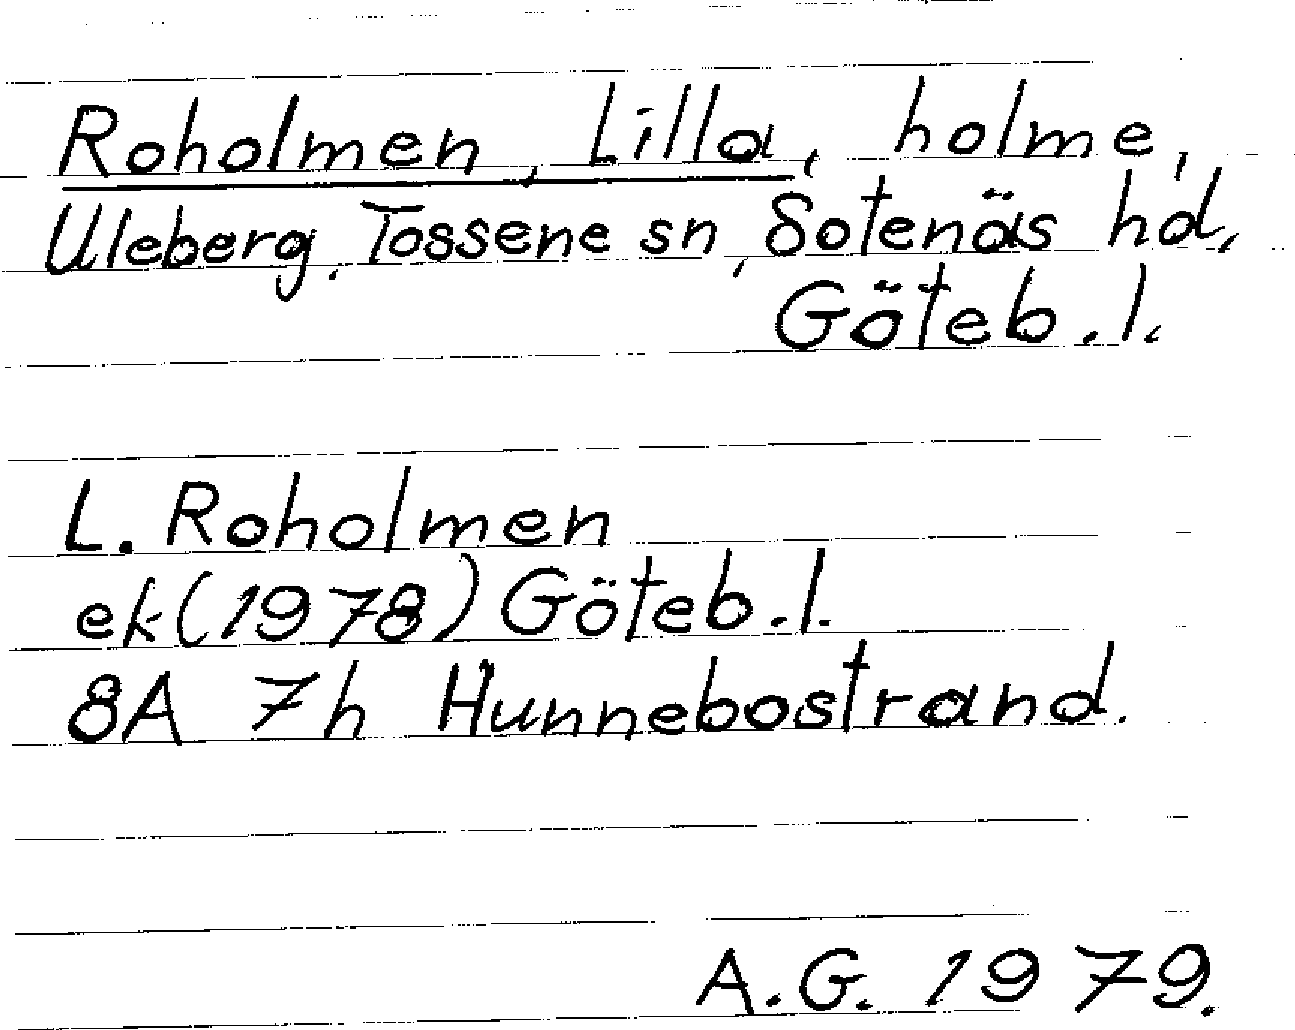 Roholmen, Lilla, holme,
Uleberg, Tossene sn, Sotenäs hd,
Göteb.l.
L. Roholmen
ek (1978) Göteb.l.
8A 7h Hunnebostrand.
A.G. 1979.